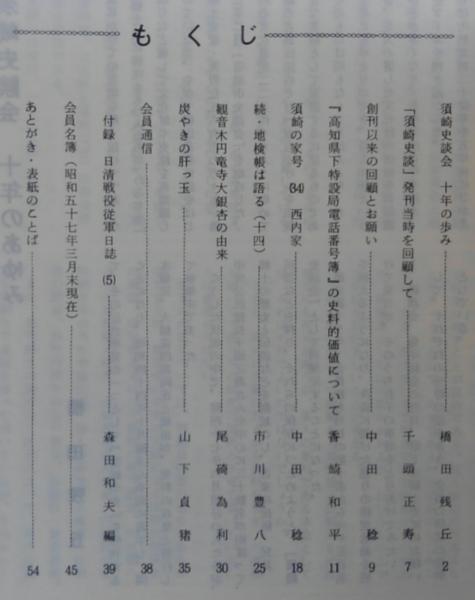 もくじ
須崎史談会　十年の歩み 橋田残丘 2
「須崎史談」発刊当時を回顧して 千頭正寿 7
創刊以来の回顧とお願い 中田稔 9
『高知県下特設局電話番号簿』の史料的価値について 香崎和平 11
須崎の家号 (34) 西内家 中田稔 18
続・地検帳は語る（十四） 市川豊八 25
観音木円竜寺大銀杏の由来 尾碕為利 30
炭やきの肝っ玉 山下貞猪 35
会員通信 38
付録　日清戦役従軍日誌 (5) 森田和夫　編 39
会員名簿（昭和五十七年三月末現在） 45
あとがき・表紙のことば 54